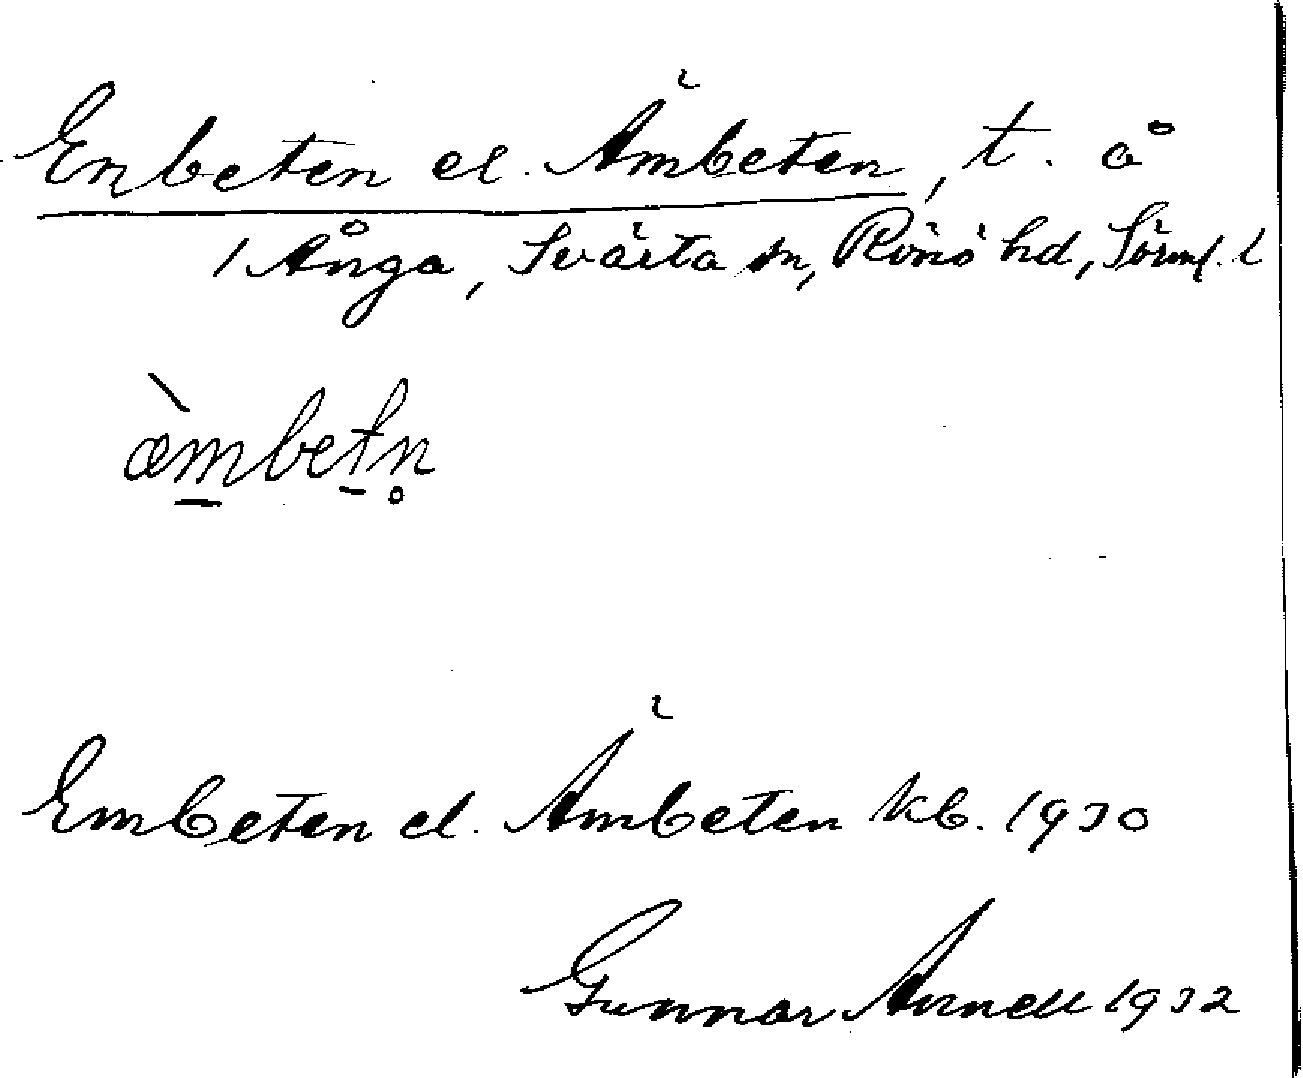 Enbeten el. Ämbeten, t. å
1 Ånga, Svärta sn, Rönö hd, Sörml. l
æ̀mbetn̥
Embeten el. Ämbeten kb. 1930
Gunnar Arnell 1932